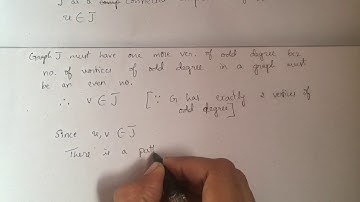 J is a connected
u ∈ J
Graph J must have one more ver. of odd degree bez
no. of vertices of odd degree in a graph must
be an even no.
∴ v ∈ J [∵ G has exactly 2 vertices of
odd degree]
Since u, v ∈ J
There is a pat